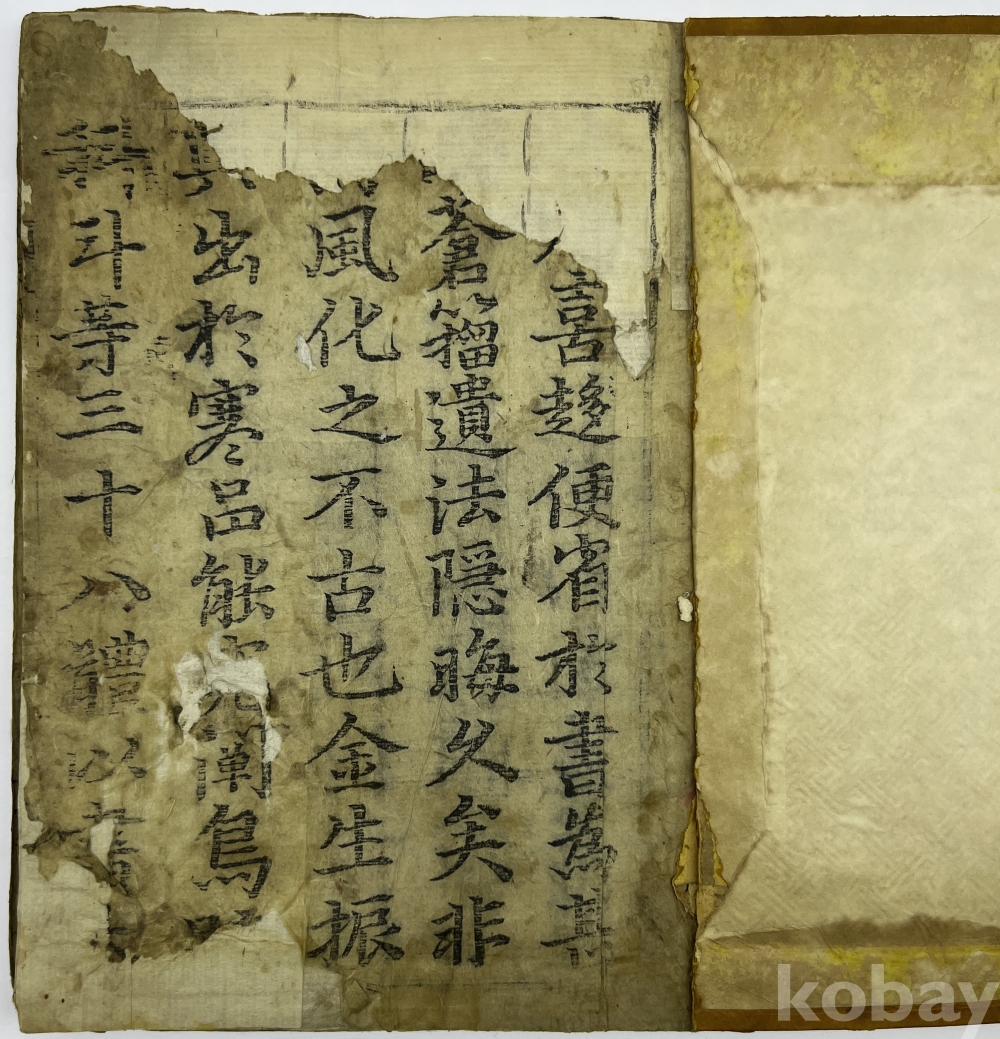 喜趍便省於書為
蒼籒遺法隱晦久矣非
風化之不古也金生振
出於寒呂能
斗等三十八體
kobay